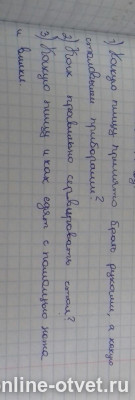 1) Какую пищу принято брать руками, а какую
столовыми приборами?
2) Как правильно сервировать стол?
3) Какую пищу и как едят с помощью ножа
и вилки
online-otvet.ru